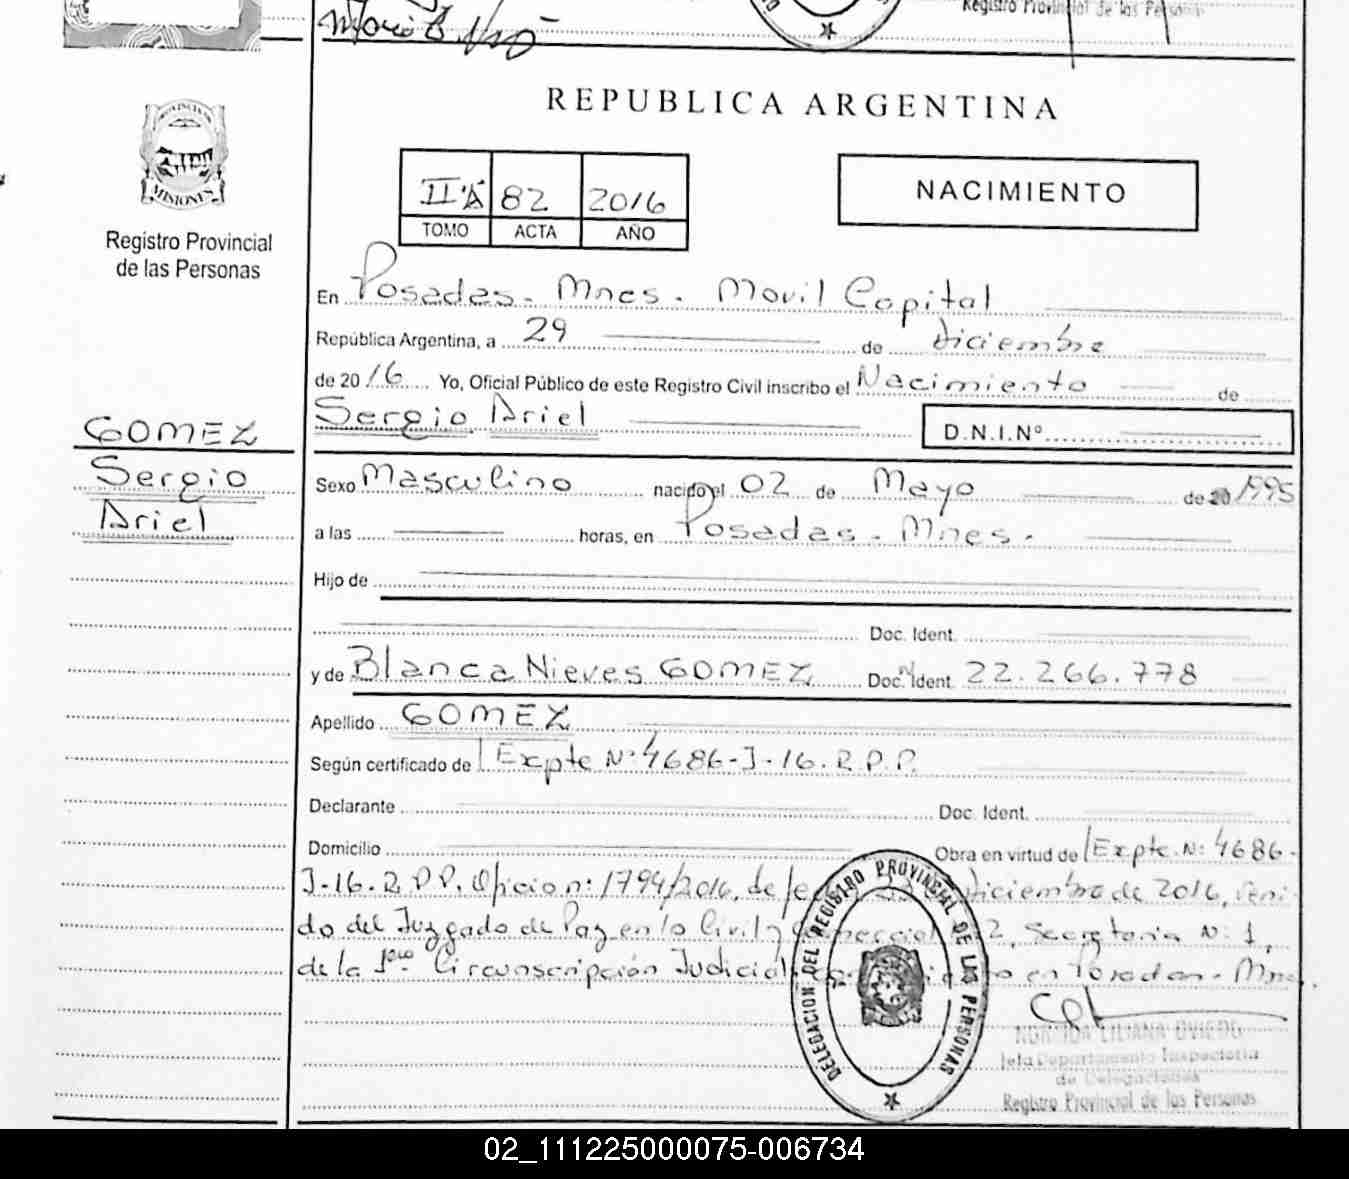 Mario B.
Registro Provincial de las Personas
REPUBLICA ARGENTINA
PROVINCIA
MISIONES
Registro Provincial
de las Personas
II"A" 82 2016
TOMO ACTA AÑO
NACIMIENTO
En Posadas - Mnes. Movil Capital
República Argentina, a 29 de diciembre
de 2016 Yo, Oficial Público de este Registro Civil inscribo el Nacimiento de
Sergio Ariel D.N.I.Nº
GOMEZ
Sergio
Ariel
Sexo Masculino nacido el 02 de Mayo de 20 1995
a las horas, en Posadas - Mnes.
Hijo de
Doc. Ident.
y de Blanca Nieves GOMEZ Doc. Ident. N 22.266.778
Apellido GOMEZ
Según certificado de Expte Nº 4686-J-16. R.P.P.
Declarante Doc. Ident.
Domicilio Obra en virtud de Expte. Nº: 4686-
J-16. R.P.P. Oficio nº: 1794/2016, de diciembre de 2016, veni-
do del Juzgado de Paz en lo Civil y Comercial 2, Secretaria Nº: 1,
de la 1era Circunscripción Judicial en Posadas - Mnes.
DELEGACION DEL REGISTRO PROVINCIAL DE LAS PERSONAS
LILIANA OVIEDO
Jefa Departamento Inspectoria
de Delegaciones
Registro Provincial de las Personas
02_111225000075-006734